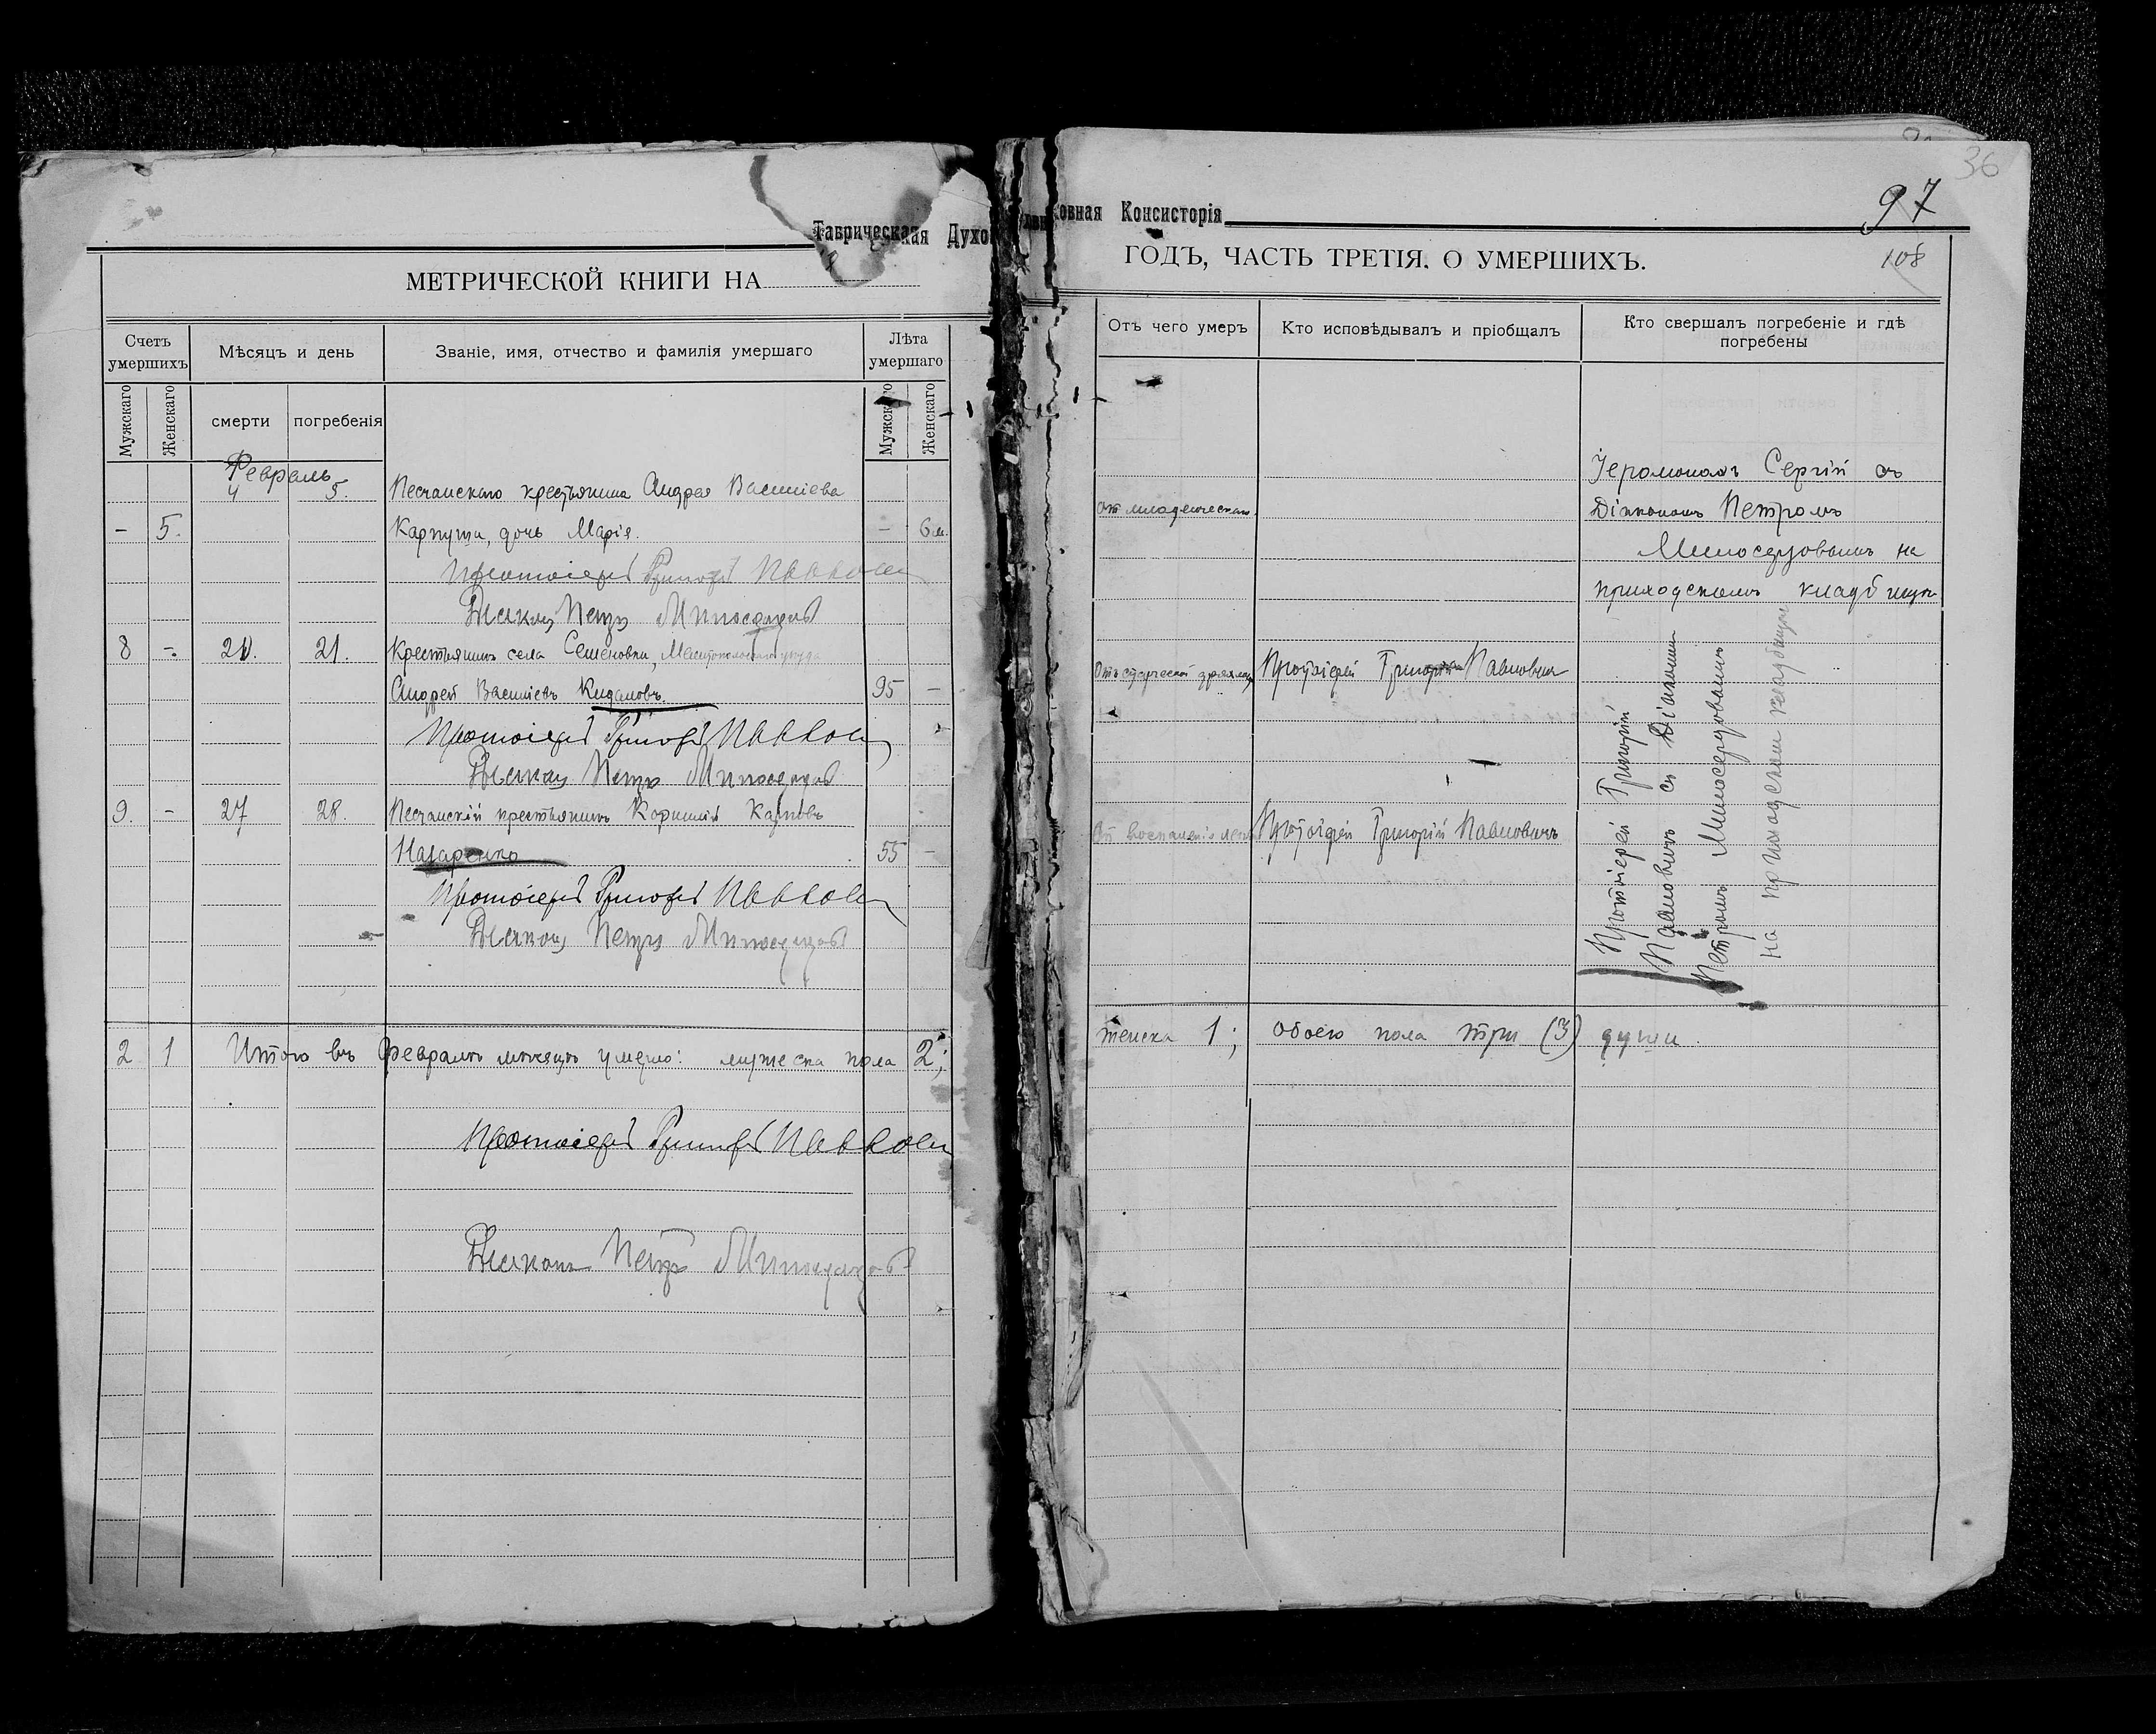 Таврическая Духовная Консисторія
36
97
108
МЕТРИЧЕСКОЙ КНИГИ НА
ГОДЪ, ЧАСТЬ ТРЕТІЯ. О УМЕРШИХЪ.
Счетъ умершихъ
Мѣсяцъ и день
Званіе, имя, отчество и фамилія умершаго
Лѣта умершаго
Мужскаго
Женскаго
смерти
погребенія
Мужскаго
Женскаго
Отъ чего умеръ
Кто исповѣдывалъ и пріобщалъ
Кто свершалъ погребеніе и гдѣ погребены
Февраль
4 5. Песчанскаго крестьянина Андрея Васильева
- 5. Карпуши, дочь Марія. - 6 м.
Протоіерей Григорій Павлович
Діаконъ Петръ Милосердовъ
8 -. 20. 21. Крестьянинъ села Семеновки, Мелитопольскаго уѣзда
Андрей Васильевъ Кидаловъ. 95 -
Протоіерей Григорій Павлович
Діаконъ Петръ Милосердовъ
9. - 27 28. Песчанскій крестьянинъ Корнилій Карповъ
Назаренко 55 -
Протоіерей Григорій Павлович
Діаконъ Петръ Милосердовъ
2 1 Итого въ Февралѣ мѣсяцѣ умерло: мужеска пола 2;
Протоіерей Григорій Павлович
Діаконъ Петръ Милосердовъ
Іеромонахъ Сергій съ
От младенческой. Діакономъ Петромъ
Милосердовымъ на
приходскомъ кладбищѣ
Отъ старческой дряхлости Протоіерей Григорій Павлович
От воспаленія легк Протоіерей Григорій Павловичъ
Протоіерей Григорій
Павловичъ съ Діакономъ
Петромъ Милосердовымъ
на приходском кладбищѣ
женска 1; обоего пола три (3) души.